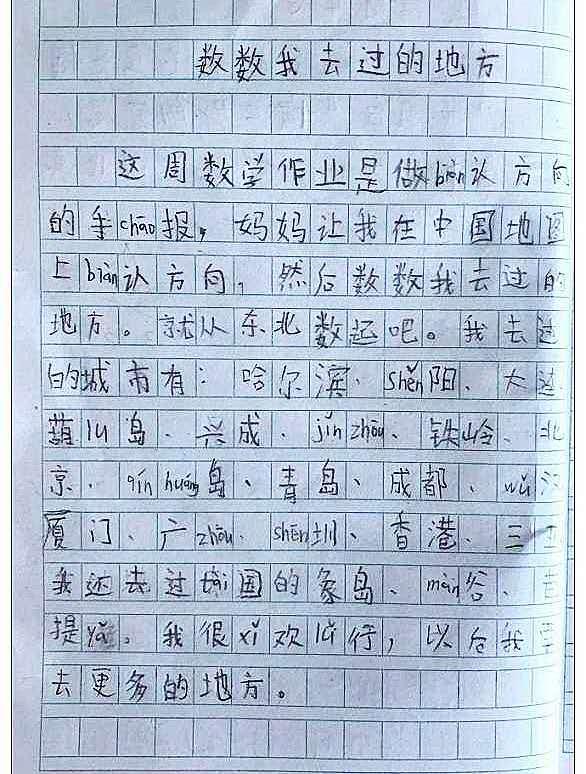 数数我去过的地方
这周数学作业是做biàn认方向
的手chāo报，妈妈让我在中国地图
上biàn认方向，然后数数我去过的
地方。就从东北数起吧。我去过
的城市有：哈尔滨、shěn阳、大连
葫lú岛、兴成、jǐnzhōu、铁岭、北
京、qínhuáng岛、青岛、成都、wǔ
厦门、广zhōu、shēn圳、香港、三亚
我还去过tài国的象岛、màn谷、芭
提yǎ。我很xǐ欢lǚ行，以后我要
去更多的地方。